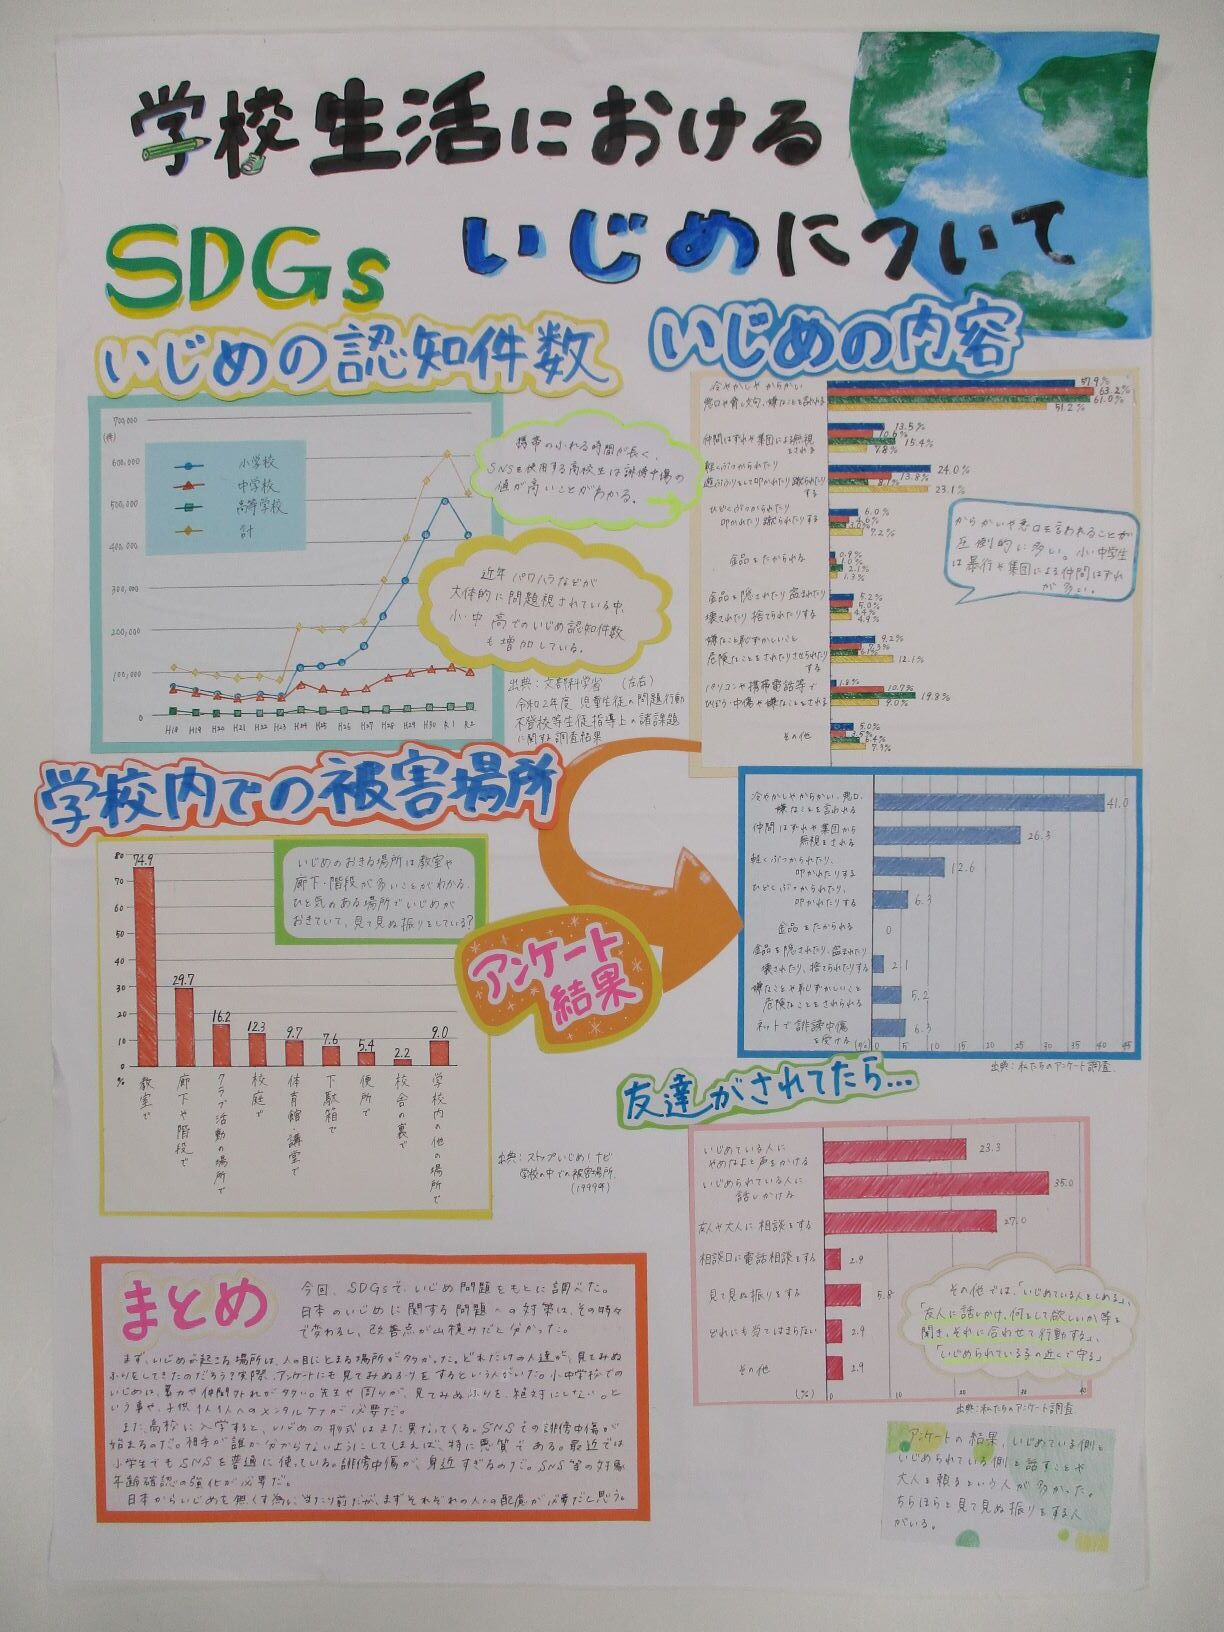 学校生活における
いじめについて
SDGs
いじめの認知件数
700,000
(件)
600,000
500,000
400,000
300,000
200,000
100,000
0
小学校
中学校
高等学校
計
H18 H19 H20 H21 H22 H23 H24 H25 H26 H27 H28 H29 H30 R1 R2
携帯のふれる時間が長く、
SNSを使用する高校生は誹謗中傷の
値が高いことがわかる。
近年パワハラなどが
大体的に問題視されている中、
小・中・高でのいじめ認知件数
も増加している。
出典：文部科学省 (左右)
令和2年度 児童生徒の問題行動
不登校等生徒指導上の諸課題
に関する調査結果
いじめの内容
冷やかしやからかい
悪口や脅し文句、嫌なことを言われる
57.9%
63.2%
61.0%
51.2%
仲間はずれや集団による無視
をされる
13.5%
10.6%
15.4%
7.8%
軽くぶつかられたり
遊ぶふりをして叩かれたり蹴られたり
する
24.0%
13.8%
23.1%
ひどくぶつかられたり
叩かれたり蹴られたりする
6.0%
7.2%
金品をたかられる
0.9%
1.0%
2.1%
1.3%
金品を隠されたり盗まれたり
壊されたり捨てられたりする
5.2%
5.0%
4.4%
4.9%
嫌なこと恥ずかしいこと
危険なことをされたりさせられたり
する
9.2%
7.3%
12.1%
パソコンや携帯電話等で
ひぼう・中傷や嫌なことをされる
1.8%
10.7%
19.8%
9.0%
その他
5.0%
3.5%
6.4%
7.3%
からかいや悪口を言われることが
圧倒的に多い。小・中学生
は暴行や集団による仲間はずれ
が多い。
学校内での被害場所
80
70
60
50
40
30
20
10
0
%
74.9
29.7
16.2
12.3
9.7
7.6
5.4
2.2
9.0
教室で
廊下や階段で
クラブ活動の場所で
校庭で
体育館・講堂で
下駄箱で
便所で
校舎の裏で
学校内の他の場所で
いじめのおきる場所は教室や
廊下・階段が多いことがわかる。
ひと気のある場所でいじめが
おきていて、見て見ぬ振りをしている?
出典：ストップいじめ!ナビ
学校の中での被害場所
(1999年)
アンケート
結果
冷やかしやからかい、悪口、
嫌なことを言われる
41.0
仲間はずれや集団から
無視をされる
26.3
軽くぶつかられたり、
叩かれたりする
12.6
ひどくぶつかられたり、
叩かれたりする
6.3
金品をたかられる
0
金品を隠されたり、盗まれたり
壊されたり、捨てられたりする
2.1
嫌なことや恥ずかしいこと
危険なことをされられる
5.2
ネットで誹謗中傷
を受ける
6.3
(%) 0 5 10 15 20 25 30 35 40 45
出典：私たちのアンケート調査
友達がされてたら…
いじめている人に
やめなよと声をかける
23.3
いじめられている人に
話しかける
35.0
友人や大人に相談をする
27.0
相談口に電話相談をする
2.9
見て見ぬ振りをする
5.8
どれにも当てはまらない
2.9
その他
2.9
(%) 0 10 20 30 40
その他では、「いじめている人をしめる」、
「友人に話しかけ、何をして欲しいか等を
聞き、それに合わせて行動する」、
「いじめられている子の近くで守る」
出典：私たちのアンケート調査
アンケートの結果、いじめている側と
いじめられている側と話すことや
大人を頼るという人が多かった。
ちらほらと見て見ぬ振りをする人
がいる。
まとめ
今回、SDGsで、いじめ問題をもとに調べた。
日本のいじめに関する問題への対策は、その時々
で変わるし、改善点が山積みだと分かった。
まず、いじめが起こる場所は、人の目にとまる場所が多かった。どれだけの人達が、見てみぬ
ふりをしてきたのだろう?実際、アンケートにも見てみぬふりをするという人がいた。小中学校での
いじめは、暴力や仲間外れが多い。先生や周りが、見てみぬふりを、絶対にしない。と
いう事や、子供1人1人へのメンタルケアが必要だ。
また、高校に入学すると、いじめの形式はまた異なってくる。SNSでの誹謗中傷が
始まるのだ。相手が誰か分からないようにしてしまえば、特に悪質である。最近では
小学生でもSNSを普通に使っている。誹謗中傷が、身近すぎるのだ。SNS等の対象
年齢確認の強化が必要だ。
日本からいじめを無くす為に、当たり前だが、まずそれぞれの人への配慮が必要だと思う。